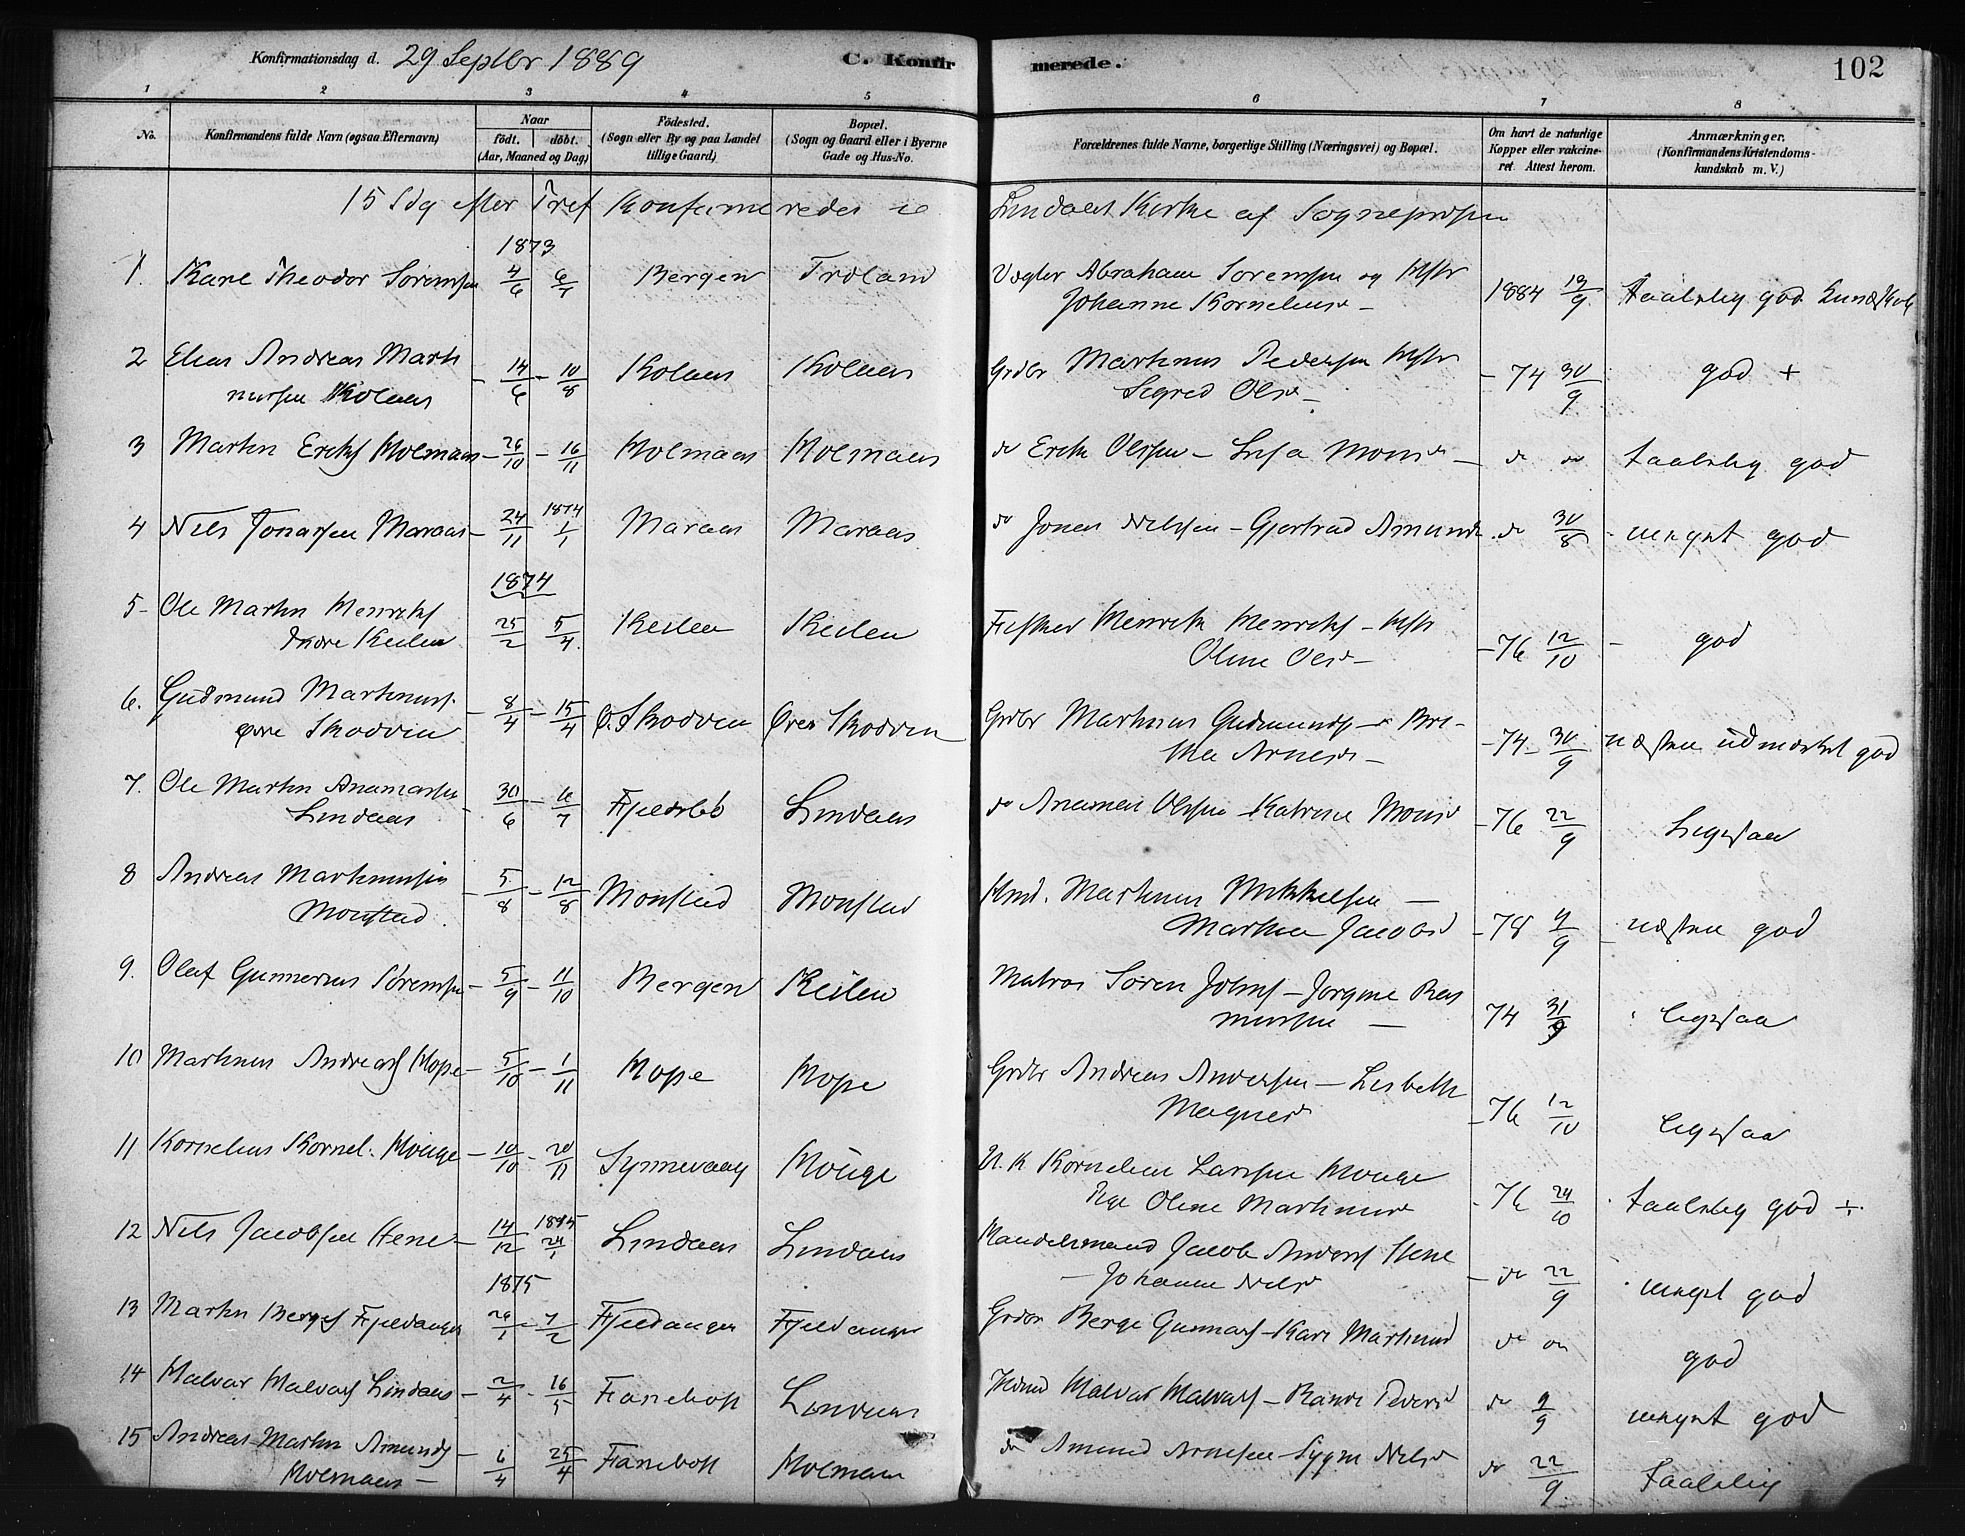 Konfirmationsdag d. 29 Septbr 1889
C. Konfirmerede.
102
1 2 3 4 5 6 7 8
No.
Konfirmandens fulde Navn (ogsaa Efternavn)
Naar
födt. döbt.
(Aar, Maaned og Dag)
Födested.
(Sogn eller By og paa Landet
tillige Gaard)
Bopæl.
(Sogn og Gaard eller i Byerne
Gade og Hus-No.
Forældrenes fulde Navne, borgerlige Stilling (Næringsvei) og Bopæl.
Om havt de naturlige
Kopper eller vakcine-
ret. Attest herom.
Anmærkninger,
(Konfirmandens Kristendoms-
kundskab m. V.)
15 Sdg efter Tref Konfirmeredes i Lindaas Kirke af Sognepresten
1873
1. Karl Theodor Sörensen 4/6 6/7 Bergen Troland Vægter Abraham Sörensen og Hstr
Johanne Kornelius d – 1884 19/9 taalelig god Kundskab
2 Elias Andreas Marti
nussen Kolaas – 14/6 – 10/8 Kolaas Kolaas Grdbr Martinus Pedersen Hstr
Sigrid Olsd – – 74 30/9 god +
3 Martin Eriks Holmaas – 26/10 – 16/11 Holmaas Holmaas do Erik Olssen – Lisa Monsd – do do taalelig god
4 Nils Jonassen Maraas – 24/11 1874 1/1 Maraas Maraas do Jonas Nilssen – Gjertrud Amunds do 30/8 meget god
1874
5 – Ole Martin Henriks
Indre Keilen 25/2 5/4 Keilen Keilen Fisker Henrik Henriks – Hstr
Oline Olsd – – 76 12/10 – god
6. Gudmund Martinuss.
øvre Skodvin – 8/4 – 15/4 Ö. Skodvin Øvre Skodvin Grdbr Martinus Gudmunds – Bri-
tha Arnesd – – 74 – 30/9 næsten udmerket god
7. Ole Martin Anamassen
Lindaas – 30/6 – 6/7 Fjeldsbö Lindaas do Ananias Olssen – Katrine Monsd – 76 22/9 Ligesaa
8 Andreas Martinussen
Monstad – 5/8 – 12/8 Monstad Monstad Hmd. Martinus Mikkelsen –
Martha Jacobsd – 78 9/9 næsten god
9. Olaf Gunnerius Sörensen – 5/9 – 11/10 Bergen Keilen Matros Sören Johns – Jorgine Ras
mussen – 74 31/9 ligesaa
10 Martinus Andreas Hope – 5/10 – 1/11 Hope Hope Grdbr Andreas Andersen – Lisbeth
Magnesd – 76 12/10 ligesaa
11 Kornelius Kornel. Houge – 10/10 – 20/11 Synnevaag Houge U. K Kornelius Larssen Houge
Pge Oline Martinusd – 76 24/10 taalelig god ÷
12 Nils Jacobsen Hene – 14/12 1875 24/1 Lindaas Lindaas Handelsmand Jacob Anders Hene
– Johanne Nilsd – do 22/9 meget god
1875
13 Martin Berges Fjeldanger 29/1 – 7/2 Fjeldanger Fjeldanger Grdbr Berge Gunnars – Kari Martinusd do do god
14 Halvor Halvors Lindaas – 2/4 – 16/5 Fanebost Lindaas Hmd Halvor Halvors – Randi Pedersd do 9/9 meget god
15 Andreas Martin Amunds –
Holmaas – 6/4 25/4 Fanebost Holmaas do Amund Arnesen – Sygni Nilsd do 22/9 taalelig